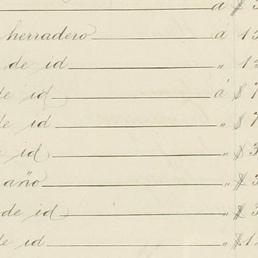 á $
herradero á 1
de id " 1
de id á $ 7
de id " $ 7
e id " $ 3
año " $ 3
de id " $ 3
de id " $ 1